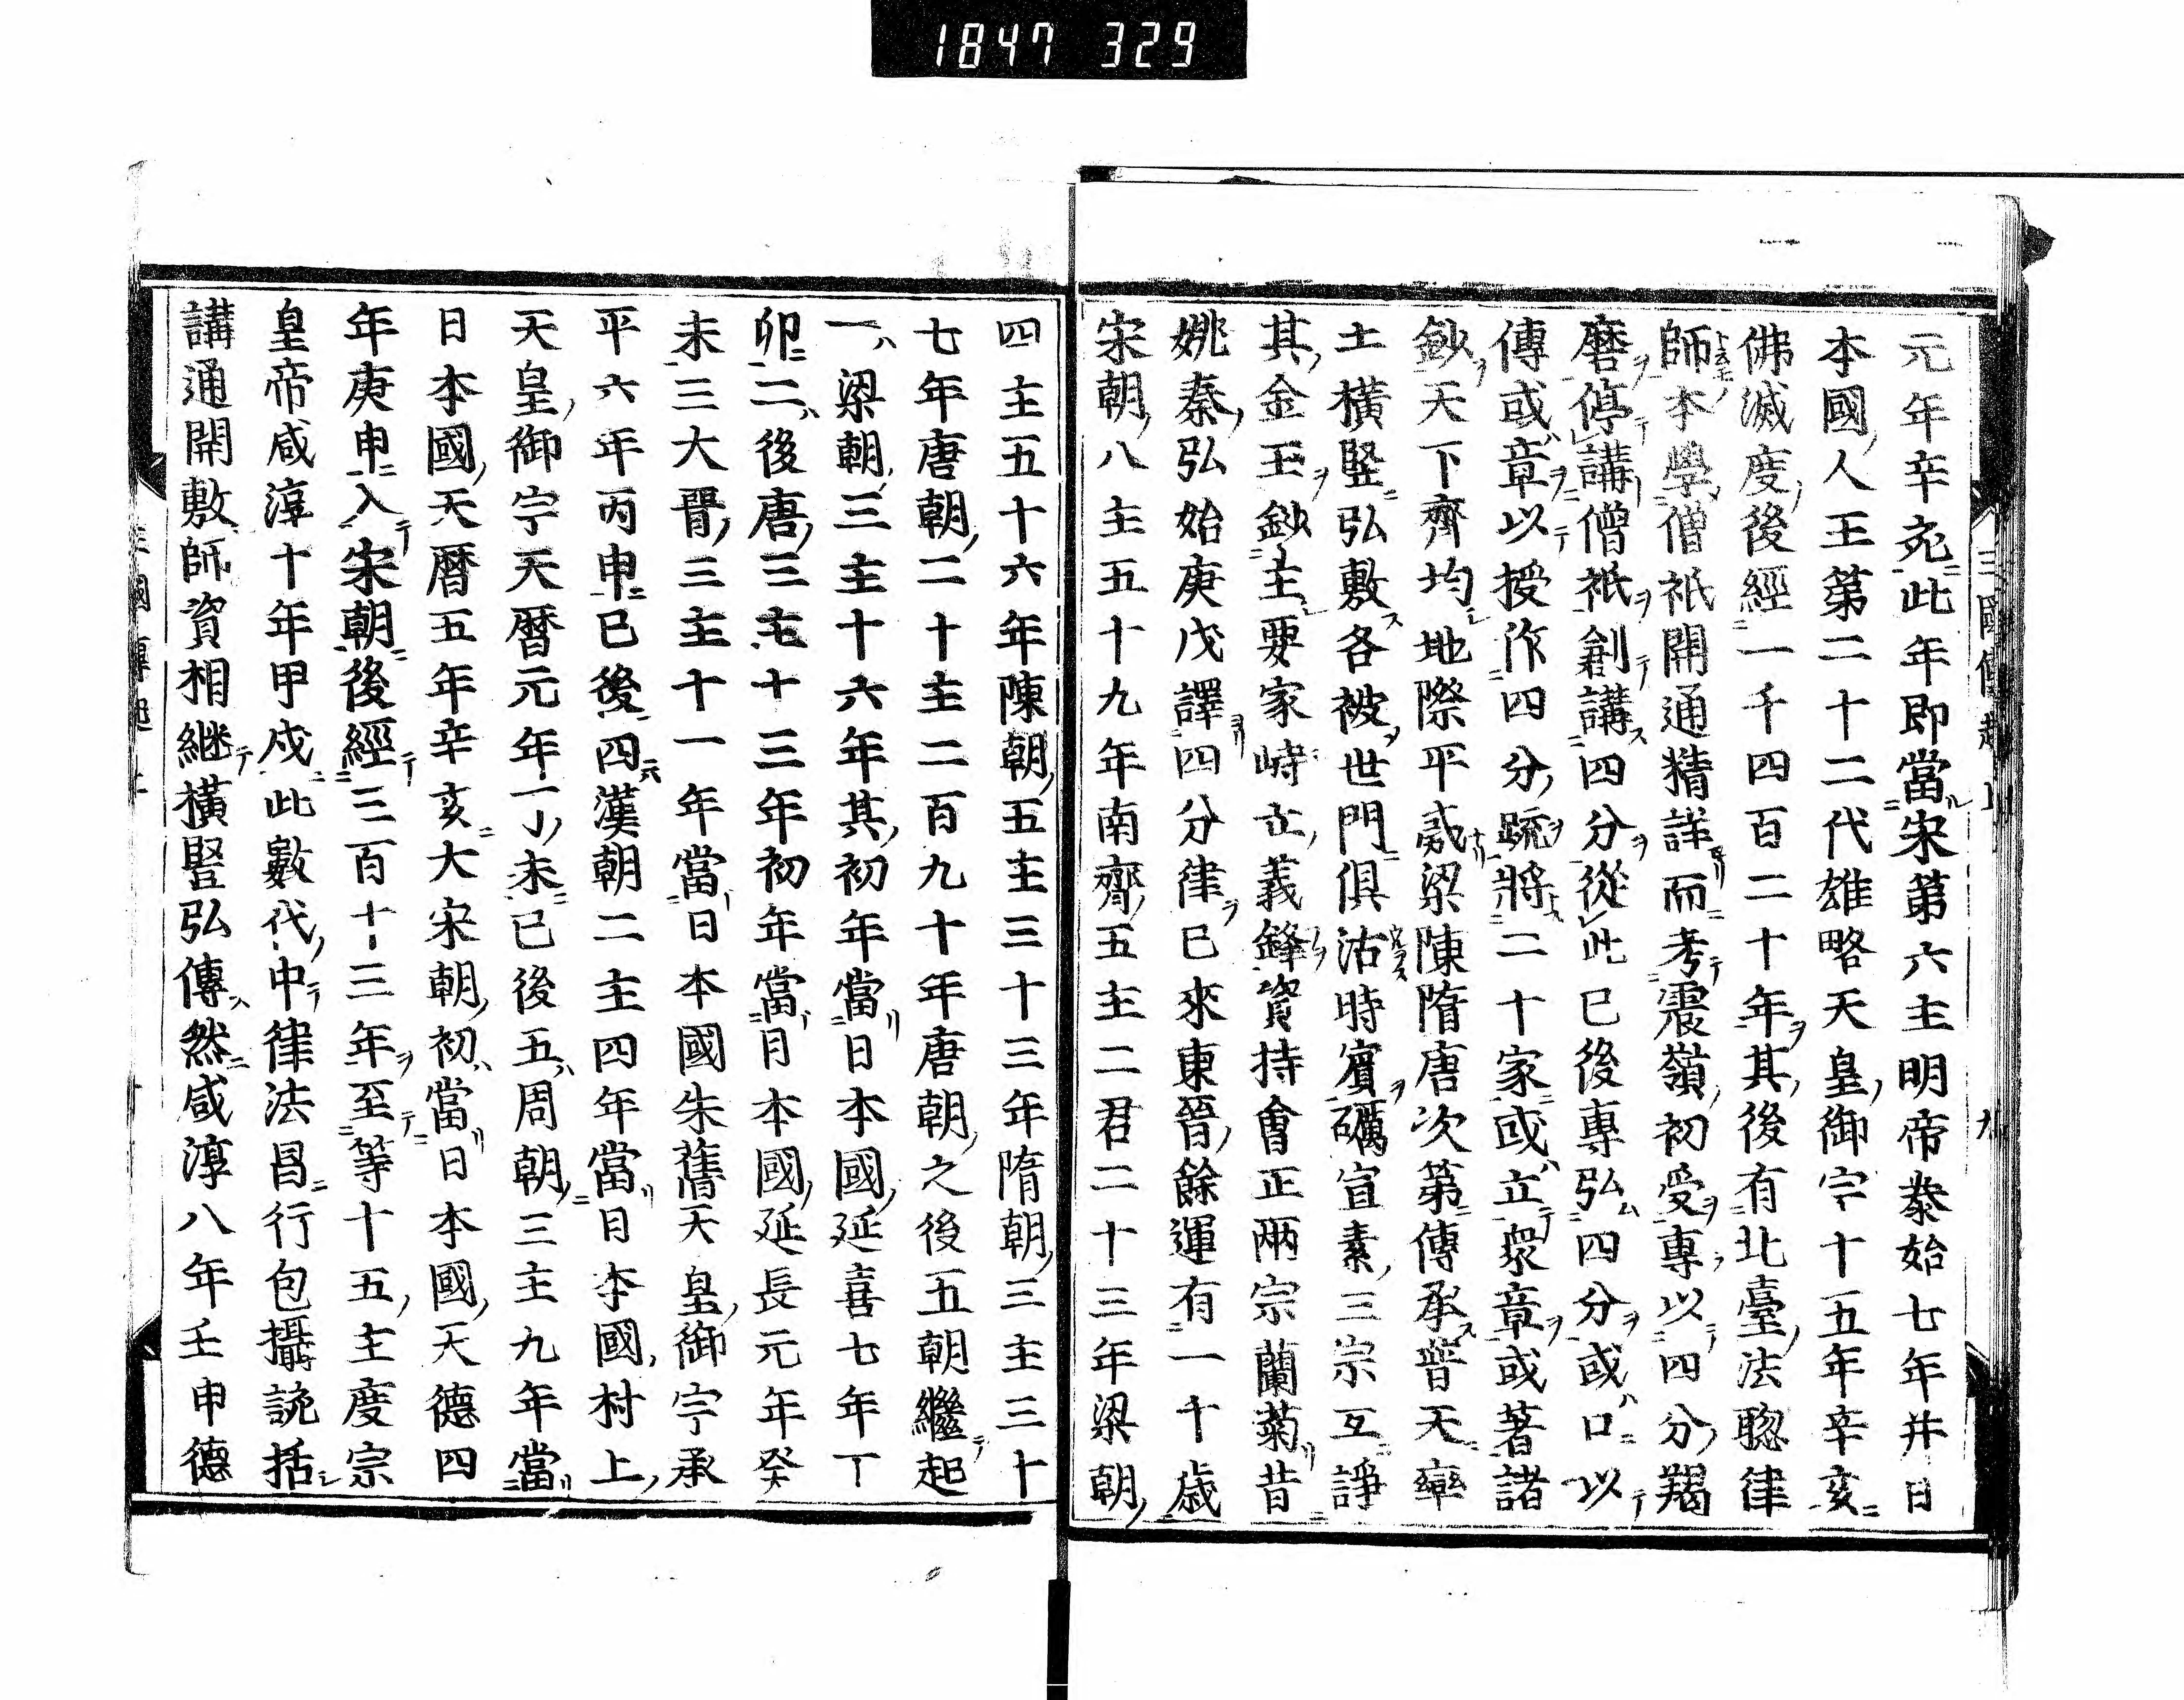 1847 329
元年辛亥此年即當宋第六主明帝泰始七年并日
本國人王第二十二代雄略天皇御宇十五年辛亥
佛滅度後經一千四百二十年其後有北臺法聰律
師本學僧祇開通精詳而考震嶺初受專以四分羯
磨停講僧祇創講四分從此已後專弘四分或口以
傳或章以授作四分疏將二十家或立衆章或著諸
鈔天下齊均地際平呑梁陳隋唐次第傳承普天率
土橫竪弘敷各被世門俱沾時賓礪宣素三宗互諍
其金玉鈔主要家峙立義鋒資持會正兩宗蘭菊昔
姚秦弘始庚戌譯四分律已來東晉餘運有一十歳
宋朝八主五十九年南齊五主二君二十三年梁朝
四主五十六年陳朝五主三十三年隋朝三主三十
七年唐朝二十主二百九十年唐朝之後五朝繼起
一梁朝三主十六年其初年當日本國延喜七年丁
卯二後唐三主十三年初年當日本國延長元年癸
未三大晉三主十一年當日本國朱雀天皇御宇承
平六年丙申已後四漢朝二主四年當日本國村上
天皇御宇天曆元年丁未已後五周朝三主九年當
日本國天曆五年辛亥大宋朝初當日本國天德四
年庚申入宋朝後經三百十三年至等十五主度宗
皇帝咸淳十年甲戌此數代中律法昌行包攝說括
講通開敷師資相繼橫竪弘傳然咸淳八年壬申德
三國傳起 上 九